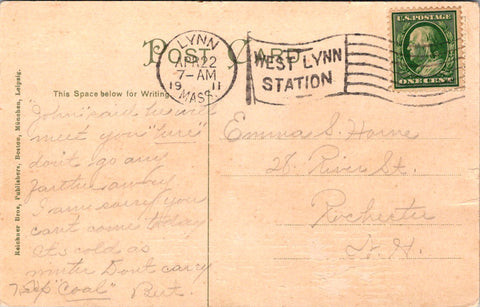 LYNN
APR 22
7-AM
19 11
MASS.
POST CARD
WEST LYNN
STATION
U.S. POSTAGE
ONE CENT
This Space below for Writing
Reichner Bros, Publishers, Boston, München, Leipzig.
"John" said he will
meet you "sure"
don't go any
farther away
I am sorry you
can't come today
Its cold as
winter Dont carry
"Coal" Bert.
Emma S. Horne
28 River St.
Rochester
N. H.